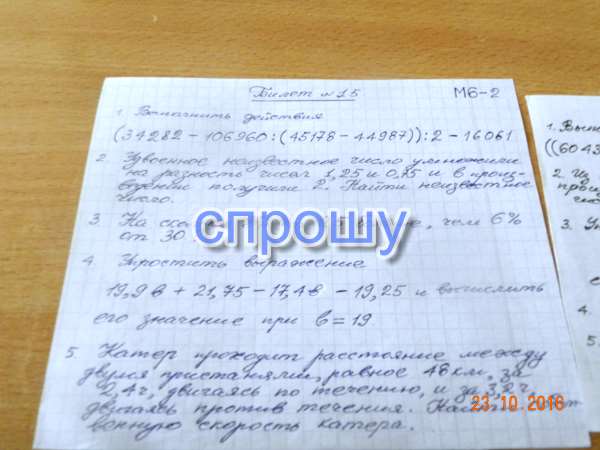 Билет №15 М6-2
1. Выполнить действия
(34282 - 106960 : (45178 - 44987)) : 2 - 16061
2. Удвоенное неизвестное число умножили
на разность чисел 1,25 и 0,75 и в произ-
ведении получили 2. Найти неизвестное
число.
3. На , чем 6%
от 30
спрошу
4. Упростить выражение
19,9в + 21,75 - 17,4в - 19,25 и вычислить
его значение при в = 19
5. Катер проходит расстояние между
двумя пристанями, равное 48 км, за
2,4ч, двигаясь по течению, и за 3,2ч,
двигаясь против течения.
венную скорость катера.
23.10.2016
1.
((6043
2.
3.
4.
5.